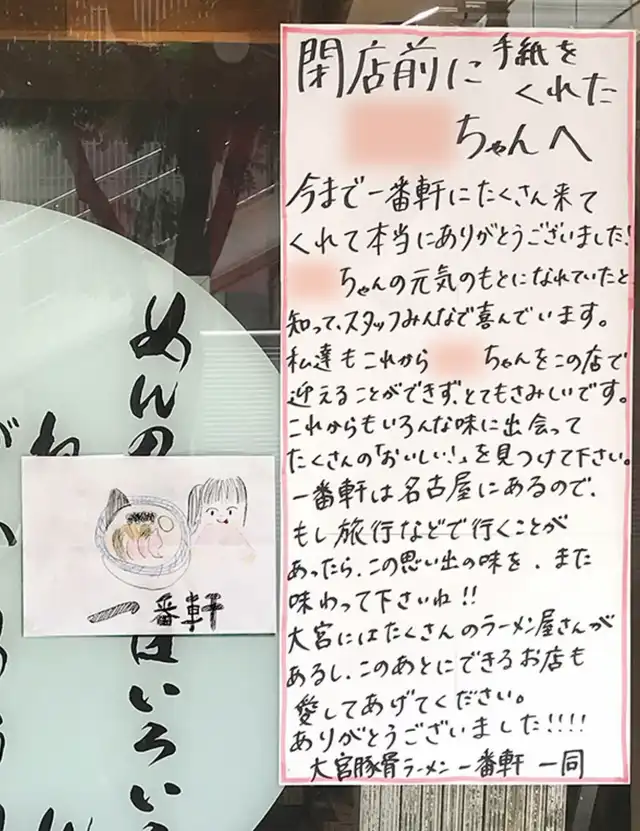 閉店前に手紙を
くれた
ちゃんへ
今まで一番軒にたくさん来て
くれて本当にありがとうございました!
ちゃんの元気のもとになれていたと
知って、スタッフみんなで喜んでいます。
私達もこれからちゃんをこの店で
迎えることができず、とてもさみしいです。
これからもいろんな味に出会って
たくさんの「おいしい!」を見つけて下さい。
一番軒は名古屋にあるので、
もし旅行などで行くことが
あったら、この思い出の味を、また
味わって下さいね!!
大宮にはたくさんのラーメン屋さんが
あるし、このあとにできるお店も
愛してあげてください。
ありがとうございました!!!!
大宮豚骨ラーメン一番軒 一同
一番軒
めんの
はいろいろ